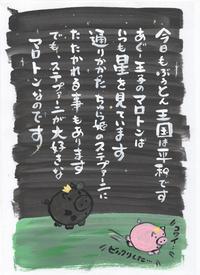 今日もぶぅとん王国は平和です
あぐー王子のマロトンは
いつも星を見ています
通りがかった ちゃら姫のステファーニに
たたかれる事もあります
でも、ステファーニが大好きな
マロトンなのです
コワイ…
ビックリした…